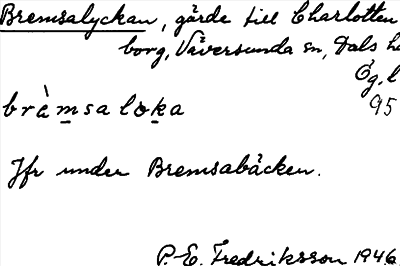 Bremsalyckan, gärde till Charlotten
borg, Väversunda sn, Dals h
Ög. l
bràmsaloka 95
Jfr under Bremsabäcken.
P. E. Fredriksson 1946.